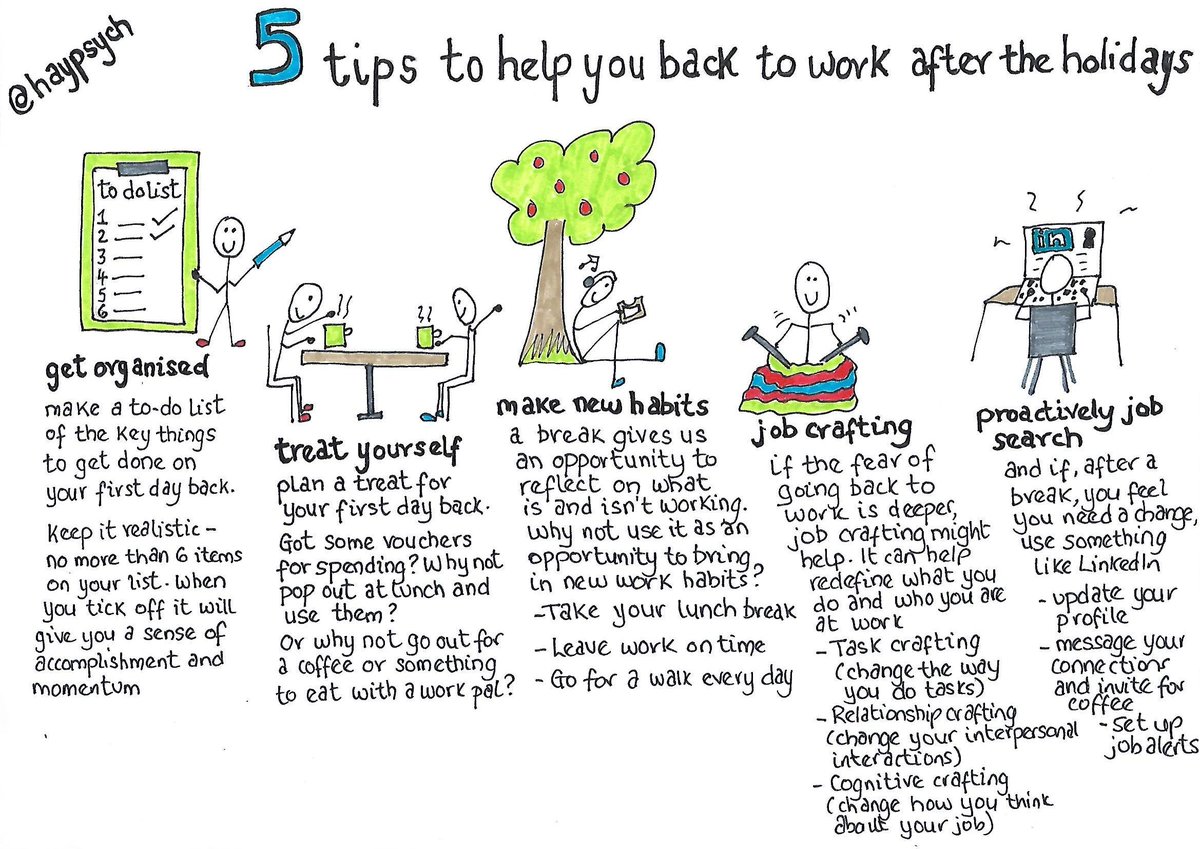 @haypsych
5 tips to help you back to work after the holidays
to do list
1
2
3
4
5
6
get organised
make a to-do list
of the key things
to get done on
your first day back.
Keep it realistic -
no more than 6 items
on your list. When
you tick off it will
give you a sense of
accomplishment and
momentum
treat yourself
plan a treat for
your first day back.
Got some vouchers
for spending? Why not
pop out at lunch and
use them?
Or why not go out for
a coffee or something
to eat with a work pal?
make new habits
a break gives us
an opportunity to
reflect on what
is and isn't working.
Why not use it as an
opportunity to bring
in new work habits?
- Take your lunch break
- Leave work on time
- Go for a walk every day
job crafting
if the fear of
going back to
work is deeper,
job crafting might
help. It can help
redefine what you
do and who you are
at work
- Task crafting
(change the way
you do tasks)
- Relationship crafting
(change your interpersonal
interactions)
- Cognitive crafting
(change how you think
about your job)
in
proactively job
search
and if, after a
break, you feel
you need a change,
use something
like LinkedIn
- update your
profile
- message your
connections
and invite for
coffee
- set up
job alerts